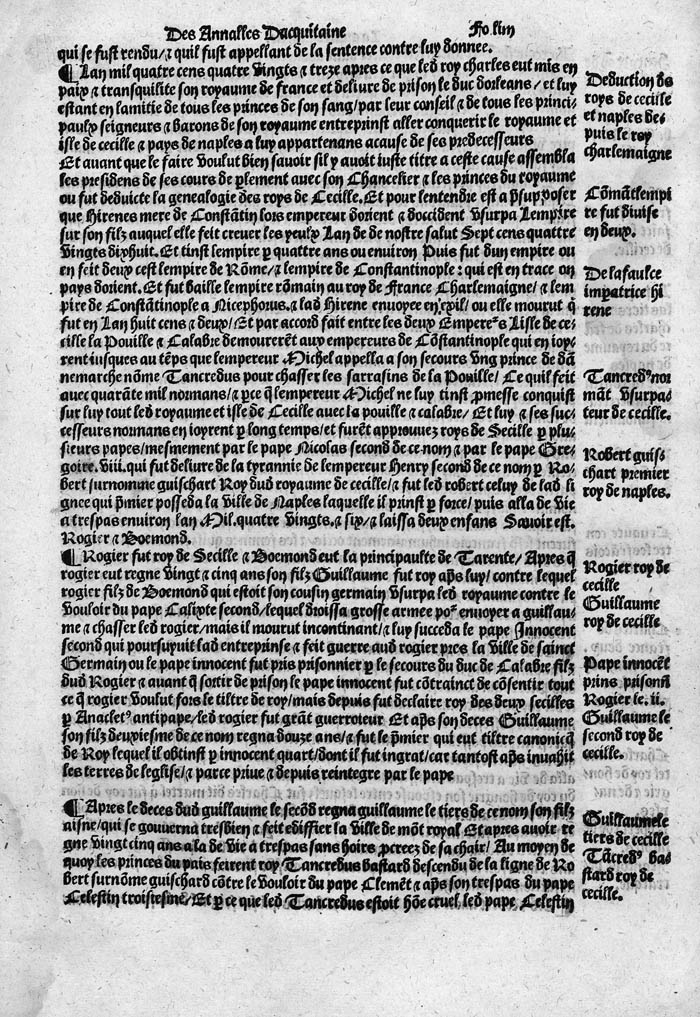 Des Annalles Dacquitaine
Fo. liiii
qui se fust rendu/ ⁊ quil fust appellant de la sentence contre luy donnee.
¶ Lan mil quatre cens quatre vingts ⁊ treze apres ce que led roy charles eut mis en
paix ⁊ transquilite son royaume de france et deliure de prison le duc dorleans/ et luy
estant en lamitie de tous les princes de son sang/ par leur conseil ⁊ de tous les princi
paulx seigneurs ⁊ barons de son royaume entreprinst aller conquerir le royaume et
isle de cecille ⁊ pays de naples a luy appartenans acause de ses predecesseurs
Et auant que le faire voulut bien sauoir sil y auoit iuste titre a ceste cause assembla
les presidens de ses cours de plement auec son Chancelier ⁊ les princes du royaume
ou fut deduicte la genealogie des roys de Cecille. Et pour lentendre est a psupposer
que Hirenes mere de Constātin lors empereur dorient ⁊ doccident vsurpa Lempire
sur son filz auquel elle feit creuer les yeulx Lan de de nostre salut Sept cens quatre
vingts dixhuit. Et tinst lempire p quatre ans ou enuiron Puis fut dun empire ou
en feit deux cest lempire de Rōme/ ⁊ lempire de Constantinople: qui est en trace ou
pays dorient. Et fut baille lempire rōmain au roy de France Charlemaigne/ ⁊ lem
pire de Constantinople a Nicephorus/ ⁊ lad Hirene enuoyee en exil/ ou elle mourut q̄
fut en Lan huit cens ⁊ deux/ Et par accord fait entre les deux Emperers Lisle de ce⸗
cille la Pouille ⁊ Calabre demourerēt aux empereurs de Cōstantinople qui en ioy⸗
rent iusques au tēps que lempereur Michel appella a son secours vng prince de dā
nemarche nōme Tancredus pour chasser les sarrasins de la Pouille/ Ce quil feit
auec quarāte mil normans/ ⁊ pce q̄ lempereur Michel ne luy tinst pmesse conquist
sur luy tout led royaume et isle de Cecille auec la pouille ⁊ calabre/ Et luy ⁊ ses suc⸗
cesseurs normans en ioyrent p long temps/ et furēt approuuez roys de Secille p plu⸗
sieurs papes/ mesmement par le pape Nicolas second de ce nom ⁊ par le pape Gre⸗
goire. viii. qui fut deliure de la tyrannie de lempereur Henry second de ce nom p Ro⸗
bert surnomme guischart Roy dud royaume de cecille/ ⁊ fut led robert celuy de lad li
gnee qui pmier posseda la ville de Naples laquelle il prinst p force/ puis alla de vie
a trespas enuiron lan Mil. quatre vingts. ⁊ six/ ⁊ laissa deux enfans Sauoir est.
Rogier ⁊ Boemond.
¶ Rogier fut roy de Secille ⁊ Boemond eut la principaulte de Tarente/ Apres q̄
rogier eut regne vingt ⁊ cinq ans son filz Guillaume fut roy aps luy/ contre lequel
rogier filz de Boemond qui estoit son cousin germain vsurpa led royaume contre le
vouloir du pape Calixte second/ lequel droissa grosse armee por enuoyer a guillau⸗
me ⁊ chasser led rogier/ mais il mourut incontinant/ ⁊ luy succeda le pape Innocent
second qui poursuyuit lad entreprinse ⁊ feit guerre aud rogier pres la ville de sainct
Germain ou le pape innocent fut pris prisonnier p le secours du duc de Calabre filz
dud Rogier ⁊ auant q̄ sortir de prison le pape innocent fut cōtrainct de cōsentir tout
ce q̄ rogier voulut fors le tiltre de roy/ mais depuis fut declaire roy des deux secilles
p Anaclets antipape/ led rogier fut grāt guerroieur Et aps son deces Guillaume
son filz deuxiesme de ce nom regna douze ans/ ⁊ fut le pmier qui eut tiltre canonicq̄
de Roy lequel il obtinst p innocent quart/ dont il fut ingrat/ car tantost aps inuahit
les terres de leglise/ ⁊ parce priue ⁊ depuis reintegre par le pape
¶ Apres le deces dud guillaume le secōd regna guillaume le tiers de ce nom son filz
aisne/ qui se gouuerna tresbien ⁊ feit ediffier la ville de mōt royal Et apres auoir re
gne vingt cinq ans ala de vie à trespas sans hoirs pcreez de sa chair/ Au moyen de
quoy les princes du pais feirent roy Tancredus bastard descendu de la ligne de Ro
bert surnōme guischard cōtre le vouloir du pape Clemēt ⁊ aps son trespas du pape
Celestin troisiesme/ Et p ce que led Tancredus estoit hōe cruel/ led pape Celestin
Deduction ds
roys de cecille
et naples de⸗
puis le roy
charlemaigne
Cōmāt lempi
re fut diuise
en deux.
De la faulce
impatrice hi
rene
Tancreds nor
māt vsurpa⸗
teur de cecille.
Robert guis⸗
chart premier
roy de naples.
Rogier roy de
cecille
Guillaume
roy de cecille
Pape innocēt
prins prisonī
Rogier le. ii.
Guillaume le
second roy de
cecille.
Guillaume le
tiers de cecille
Tācreds bas⸗
tard roy de
cecille.